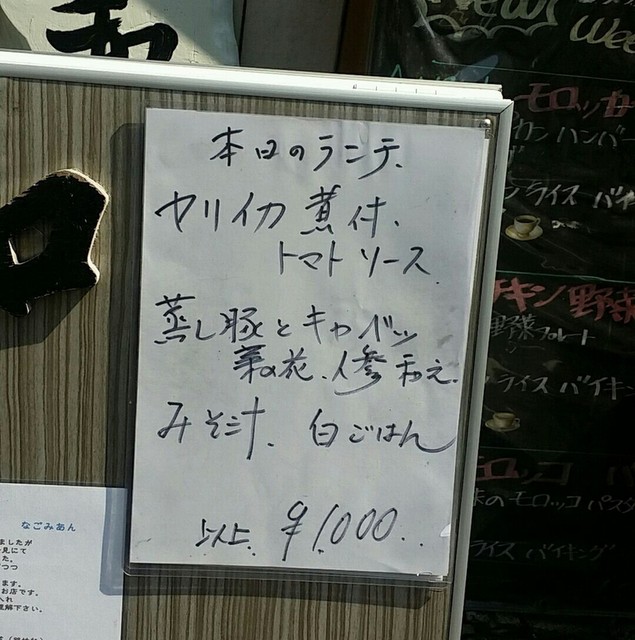 本日のランチ、
ヤリイカ煮付、
トマトソース
蒸し豚とキャベツ
菜の花、人参和え
みそ汁、白ごはん
以上 ¥1000
なごみあん
ましたが
見にて
た。
つつ
ます。
お店です。
入れ
理解下さい。
New!
Wee
モロッカ
カン ハンバー
ライス バイキ
キン 野菜
野菜プレート
ライス バイキン
モロッコ
味のモロッコ パスタ
ライス バイキング